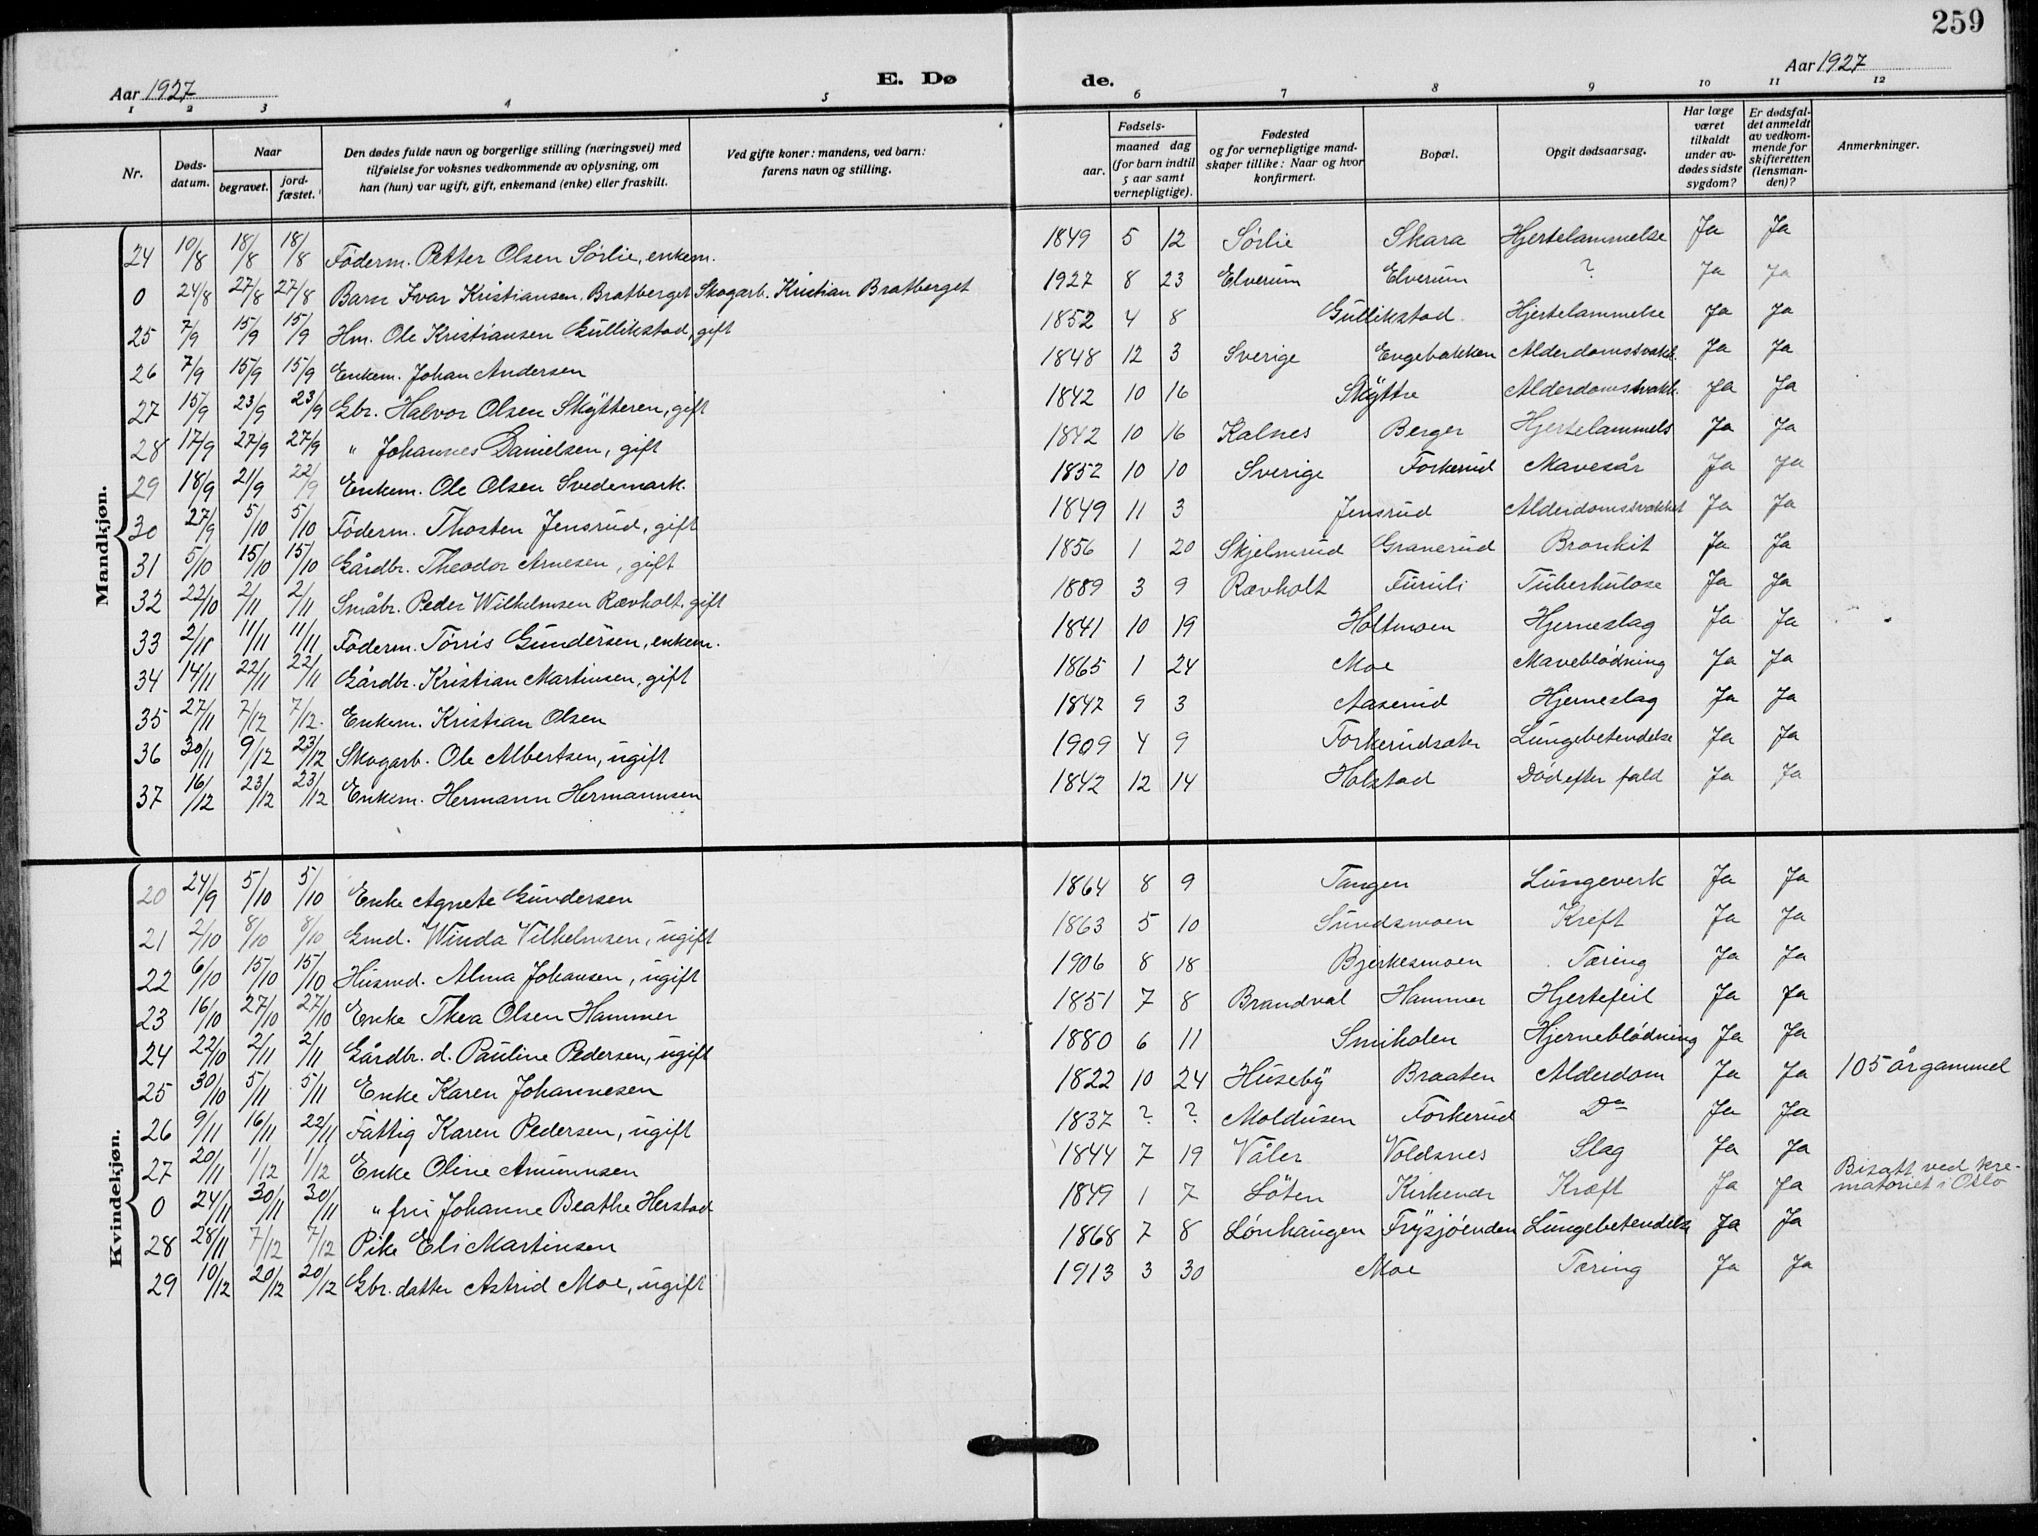 259
Aar 1927 E. Dø de. Aar 1927
1 2 3 4 5 6 7 8 9 10 11 12
Nr.
Døds-
datum.
Naar
begravet.
jord-
fæstet.
Den dødes fulde navn og borgerlige stilling (næringsvei) med
tilføielse for voksnes vedkommende av oplysning, om
han (hun) var ugift, gift, enkemand (enke) eller fraskilt.
Ved gifte koner: mandens, ved barn:
farens navn og stilling.
Fødsels-
aar.
maaned dag
(for barn indtil
5 aar samt
vernepligtige).
Fødested
og for vernepligtige mand-
skaper tillike: Naar og hvor
konfirmert.
Bopæl.
Opgit dødsaarsag.
Har læge
været
tilkaldt
under av-
dødes sidste
sygdom?
Er dødsfal-
det anmeldt
av vedkom-
mende for
skifteretten
(lensman-
den)?
Anmerkninger.
Mandkjøn.
24 10/8 18/8 18/8 Föderm. Petter Olsen Sörlie, enkem. 1849 5 12 Sörlie Skara Hjertelammelse Ja Ja
0 24/8 27/8 27/8 Barn Ivar Kristiansen Bratberget Skogarb. Kristian Bratberget 1927 8 23 Elverum Elverum ? Ja Ja
25 7/9 15/9 15/9 Hm. Ole Kristiansen Gullikstad, gift 1852 4 8 Gullikstad. Hjertelammelse Ja Ja
26 7/9 15/9 15/9 Enkem. Johan Andersen 1848 12 3 Sverige Engebakken Alderdomssvakk. Ja Ja
27 15/9 23/9 23/9 Gbr. Halvor Olsen Skÿtteren, gift 1842 10 16 Skÿttre Alderdomssvakk. Ja Ja
28 17/9 27/9 27/9 " Johannes Danielsen, gift 1842 10 16 Kalnes Berger Hjertelammels Ja Ja
29 18/9 21/9 22/9 Enkem. Ole Olsen Svedemark. 1852 10 10 Sverige Forkerud Mavesår Ja Ja
30 27/9 5/10 5/10 Föderm. Thosten Jensrud, gift 1849 11 3 Jensrud Alderdomssvakhet Ja Ja
31 5/10 15/10 15/10 Gårdbr. Theodor Arnesen, gift 1856 1 20 Skjelmrud Granerud Bronkit Ja Ja
32 22/10 2/11 2/11 Småbr. Peder Wilhelmsen Rævholt, gift 1889 3 9 Rævholt Furuli Tuberkulose Ja Ja
33 2/11 11/11 11/11 Föderm. Törris Gundersen, enkem. 1841 10 19 Holtmoen Hjerneslag Ja Ja
34 14/11 22/11 22/11 Gårdbr. Kristian Martinsen, gift 1865 1 24 Moe Maveblödning Ja Ja
35 27/11 7/12 7/12. Enkem. Kristian Olsen 1847 9 3 Aaserud Hjerneslag Ja Ja
36 30/11 9/12 23/12 Skogarb. Ole Albertsen, ugift 1909 4 9 Forkerudsæter Lungebetendelse Ja Ja
37 16/12 23/12 23/12 Enkem. Hermann Hermannsen 1842 12 14 Holstad Död efter fald Ja Ja
Kvindekjøn.
20 24/9 5/10 5/10 Enke Agnete Gundersen 1864 8 9 Tangen Lungeverk Ja Ja
21 2/10 8/10 8/10 Gmd. Winda Vilhelmsen, ugift 1863 5 10 Sundsmoen Kreft Ja Ja
22 6/10 15/10 15/10 Husmd. Alma Johansen, ugift 1906 8 18 Bjerkesmoen Tæring Ja Ja
23 16/10 27/10 27/10 Enke Thea Olsen Hammer 1851 7 8 Brandval Hammer Hjertefeil Ja Ja
24 22/10 2/11 2/11 Gårdbr. d. Pauline Pedersen, ugift 1880 6 11 Smiholen Hjerneblödning Ja Ja
25 30/10 5/11 5/11 Enke Karen Johannesen 1822 10 24 Husebÿ Braaten Alderdom Ja Ja 105 år gammel
26 9/11 16/11 22/11 Fattig Karen Pedersen, ugift 1837 ? ? Moldusen Forkerud Do Ja Ja
27 20/11 1/12 1/12 Enke Oline Amunnsen 1844 7 19 Våler Voldsnes Slag Ja Ja
0 24/11 30/11 30/11 " fru Johanne Beathe Herstad 1849 1 7 Löten Kirkenær Kræft Ja Ja Bisatt ved kre-
matoriet i Oslo
28 28/11 7/12 7/12 Pike Eli Martinsen 1868 7 8 Lönhaugen Frÿsjöenden Lungebetendelse Ja Ja
29 10/12 20/12 20/12 Gbr. datter Astrid Moe, ugift 1913 3 30 Moe Tæring Ja Ja